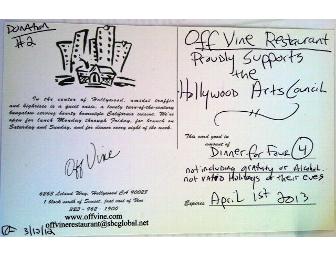 Donation
#2
Off Vine Restaurant
Proudly Supports
the
Hollywood Arts Council
In the center of Hollywood, amidst traffic
and highrises is a quiet oasis, a lovely turn-of-the-century
bungalow serving hearty homestyle California cuisine. We're
open for Lunch Monday through Friday, for brunch on
Saturday and Sunday, and for dinner every night of the week.
This card good in
amount of
Dinner for Four (4)
not including gratuity or Alcohol.
not Valid Holidays or their eves
Expires April 1st 2013
Off Vine
6263 Leland Way, Hollywood CA 90028
1 block south of Sunset, just east of Vine
323 - 962 - 1900
www.offvine.com
offvinerestaurant@sbcglobal.net
3/10/12